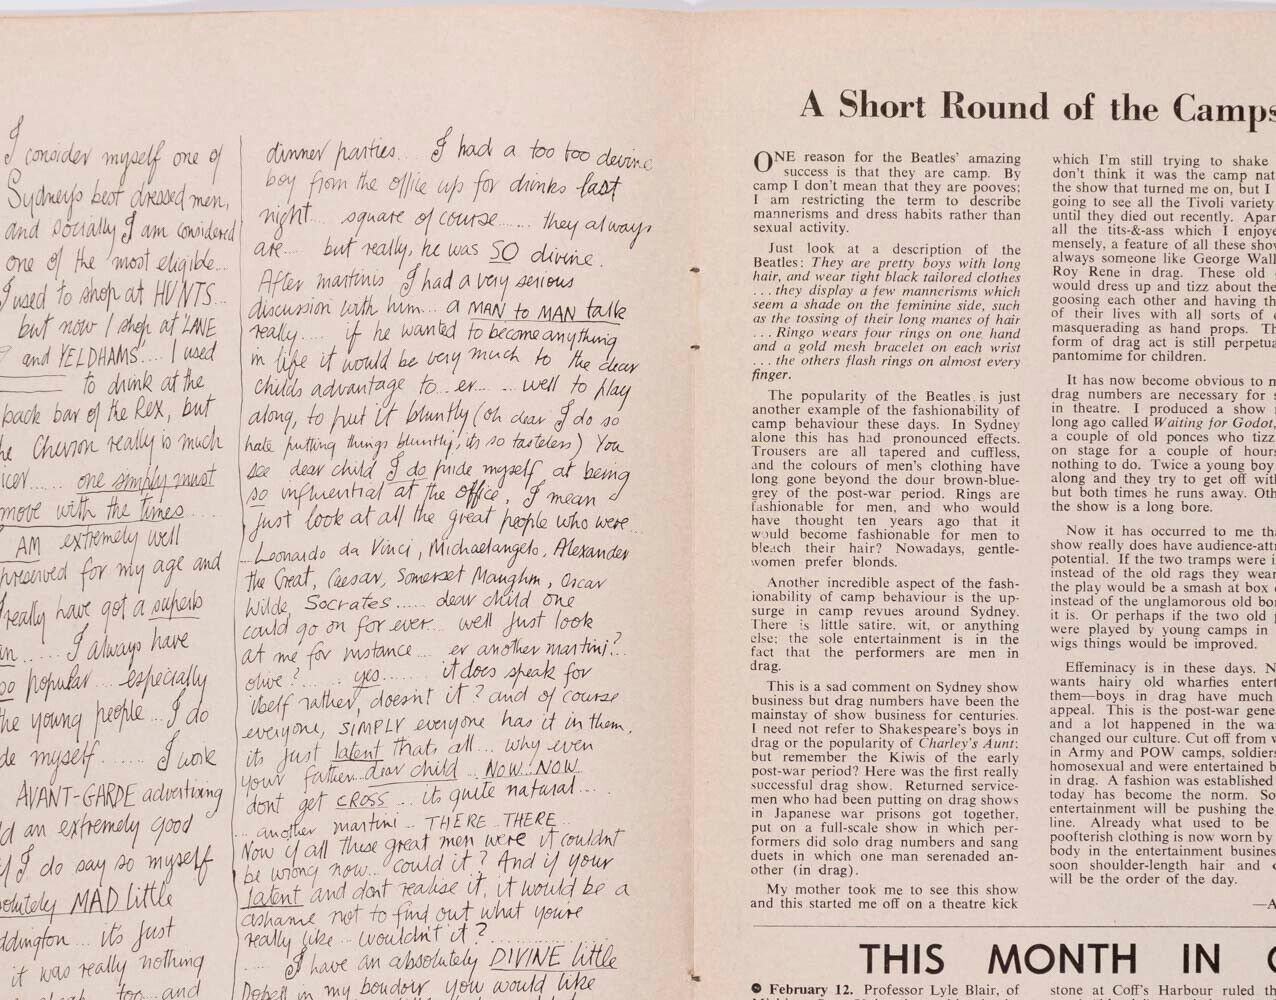 I consider myself one of
Sydneys best dressed men,
and socially I am considered
one of the most eligible...
I used to shop at HUNTS...
but now I shop at 'LANE
and YELDHAMS'.... I used
to drink at the
back bar of the Rex, but
Chevron really is much
...... one simply must
move with the times....
AM extremely well
preserved for my age and
really have got a superb
..... I always have
so popular.... especially
the young people... I do
myself...... I work
AVANT-GARDE advertising
an extremely good
I do say so myself
MAD little
... it's just
it was really nothing
too... and
dinner parties.... I had a too too devine
boy from the office up for drinks last
night.... square of course....... they always
are.... but really, he was SO divine.
After martinis I had a very serious
discussion with him... a MAN to MAN talk
really.... if he wanted to become anything
in life it would be very much to the dear
childs advantage to... er..... well to play
along, to put it bluntly (oh dear I do so
hate putting things bluntly, its so tasteless) You
see dear child I do pride myself at being
so influential at the office, I mean
just look at all the great people who were...
Leonardo da Vinci, Michaelangelo, Alexander
the Great, Caesar, Somerset Maughm, Oscar
Wilde, Socrates...... dear child one
could go on for ever... well just look
at me for instance.... er another martini?..
olive?...... yes....... it does speak for
itself rather, doesnt it? and of course
everyone, SIMPLY everyone has it in them,
its just latent thats all... why even
your father...dear child... NOW NOW
dont get CROSS... its quite natural....
... another martini... THERE THERE...
Now if all these great men were it couldnt
be wrong now... could it? And if your
latent and dont realise it, it would be a
ashame not to find out what you're
really like... wouldn't it?............
..... I have an absolutely DIVINE little
in my boudoir you would like
A Short Round of the Camps
ONE reason for the Beatles' amazing
success is that they are camp. By
camp I don't mean that they are pooves;
I am restricting the term to describe
mannerisms and dress habits rather than
sexual activity.
Just look at a description of the
Beatles: They are pretty boys with long
hair, and wear tight black tailored clothes
. . . they display a few mannerisms which
seem a shade on the feminine side, such
as the tossing of their long manes of hair
. . . Ringo wears four rings on one hand
and a gold mesh bracelet on each wrist
. . . the others flash rings on almost every
finger.
The popularity of the Beatles is just
another example of the fashionability of
camp behaviour these days. In Sydney
alone this has had pronounced effects.
Trousers are all tapered and cuffless,
and the colours of men's clothing have
long gone beyond the dour brown-blue-
grey of the post-war period. Rings are
fashionable for men, and who would
have thought ten years ago that it
would become fashionable for men to
bleach their hair? Nowadays, gentle-
women prefer blonds.
Another incredible aspect of the fash-
ionability of camp behaviour is the up-
surge in camp revues around Sydney.
There is little satire, wit, or anything
else; the sole entertainment is in the
fact that the performers are men in
drag.
This is a sad comment on Sydney show
business but drag numbers have been the
mainstay of show business for centuries.
I need not refer to Shakespeare's boys in
drag or the popularity of Charley's Aunt;
but remember the Kiwis of the early
post-war period? Here was the first really
successful drag show. Returned service-
men who had been putting on drag shows
in Japanese war prisons got together,
put on a full-scale show in which per-
formers did solo drag numbers and sang
duets in which one man serenaded an-
other (in drag).
My mother took me to see this show
and this started me off on a theatre kick
which I'm still trying to shake
don't think it was the camp nat
the show that turned me on, but I
going to see all the Tivoli variety
until they died out recently. Apar
all the tits-&-ass which I enjoye
mensely, a feature of all these show
always someone like George Wall
Roy Rene in drag. These old
would dress up and tizz about the
goosing each other and having th
of their lives with all sorts of
masquerading as hand props. Th
form of drag act is still perpetua
pantomime for children.
It has now become obvious to m
drag numbers are necessary for s
in theatre. I produced a show
long ago called Waiting for Godot,
a couple of old ponces who tizz
on stage for a couple of hours
nothing to do. Twice a young boy
along and they try to get off wit
but both times he runs away. Oth
the show is a long bore.
Now it has occurred to me tha
show really does have audience-att
potential. If the two tramps were i
instead of the old rags they wear
the play would be a smash at box
instead of the unglamorous old bo
it is. Or perhaps if the two old
were played by young camps in
wigs things would be improved.
Effeminacy is in these days. N
wants hairy old wharfies entert
them—boys in drag have much
appeal. This is the post-war gene
and a lot happened in the wa
changed our culture. Cut off from w
in Army and POW camps, soldiers
homosexual and were entertained b
in drag. A fashion was established
today has become the norm. So
entertainment will be pushing the
line. Already what used to be
poofterish clothing is now worn by
body in the entertainment busines
soon shoulder-length hair and
will be the order of the day.
—A
THIS MONTH IN
February 12. Professor Lyle Blair, of
stone at Coff's Harbour ruled th